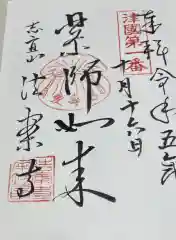 奉拝 令和五年
十月十六日
津國第一番
薬師如来
志直山 法樂寺